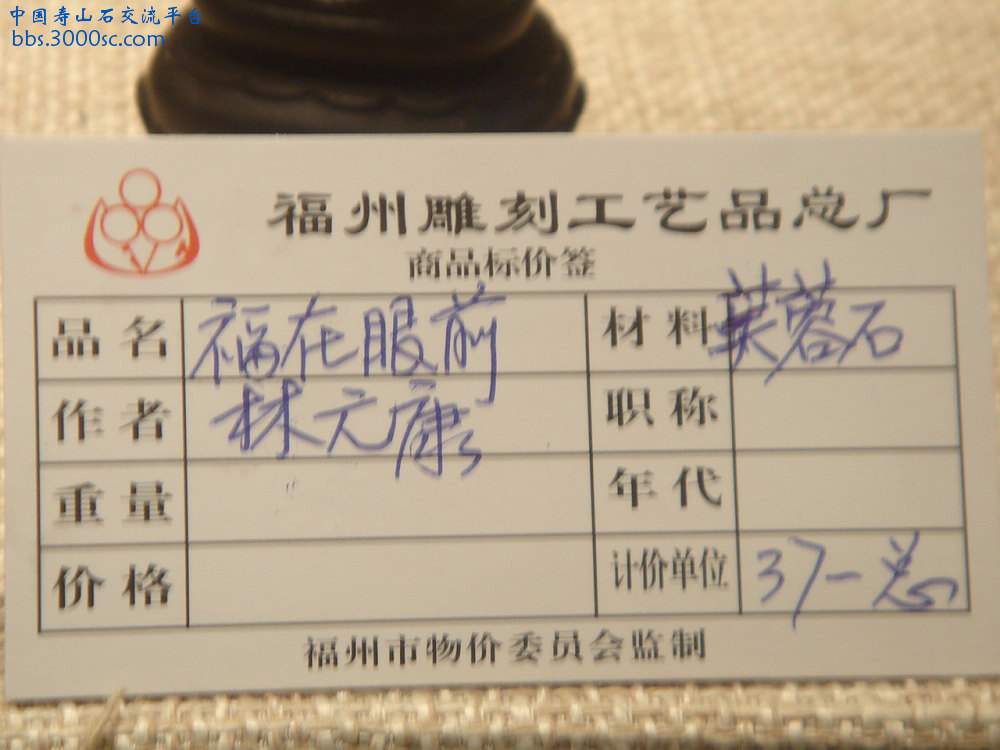 中国寿山石交流平台
bbs.3000sc.com
福州雕刻工艺品总厂
商品标价签
品名 福在眼前 材料 芙蓉石
作者 林元康 职称
重量 年代
价格 计价单位 37-总
福州市物价委员会监制